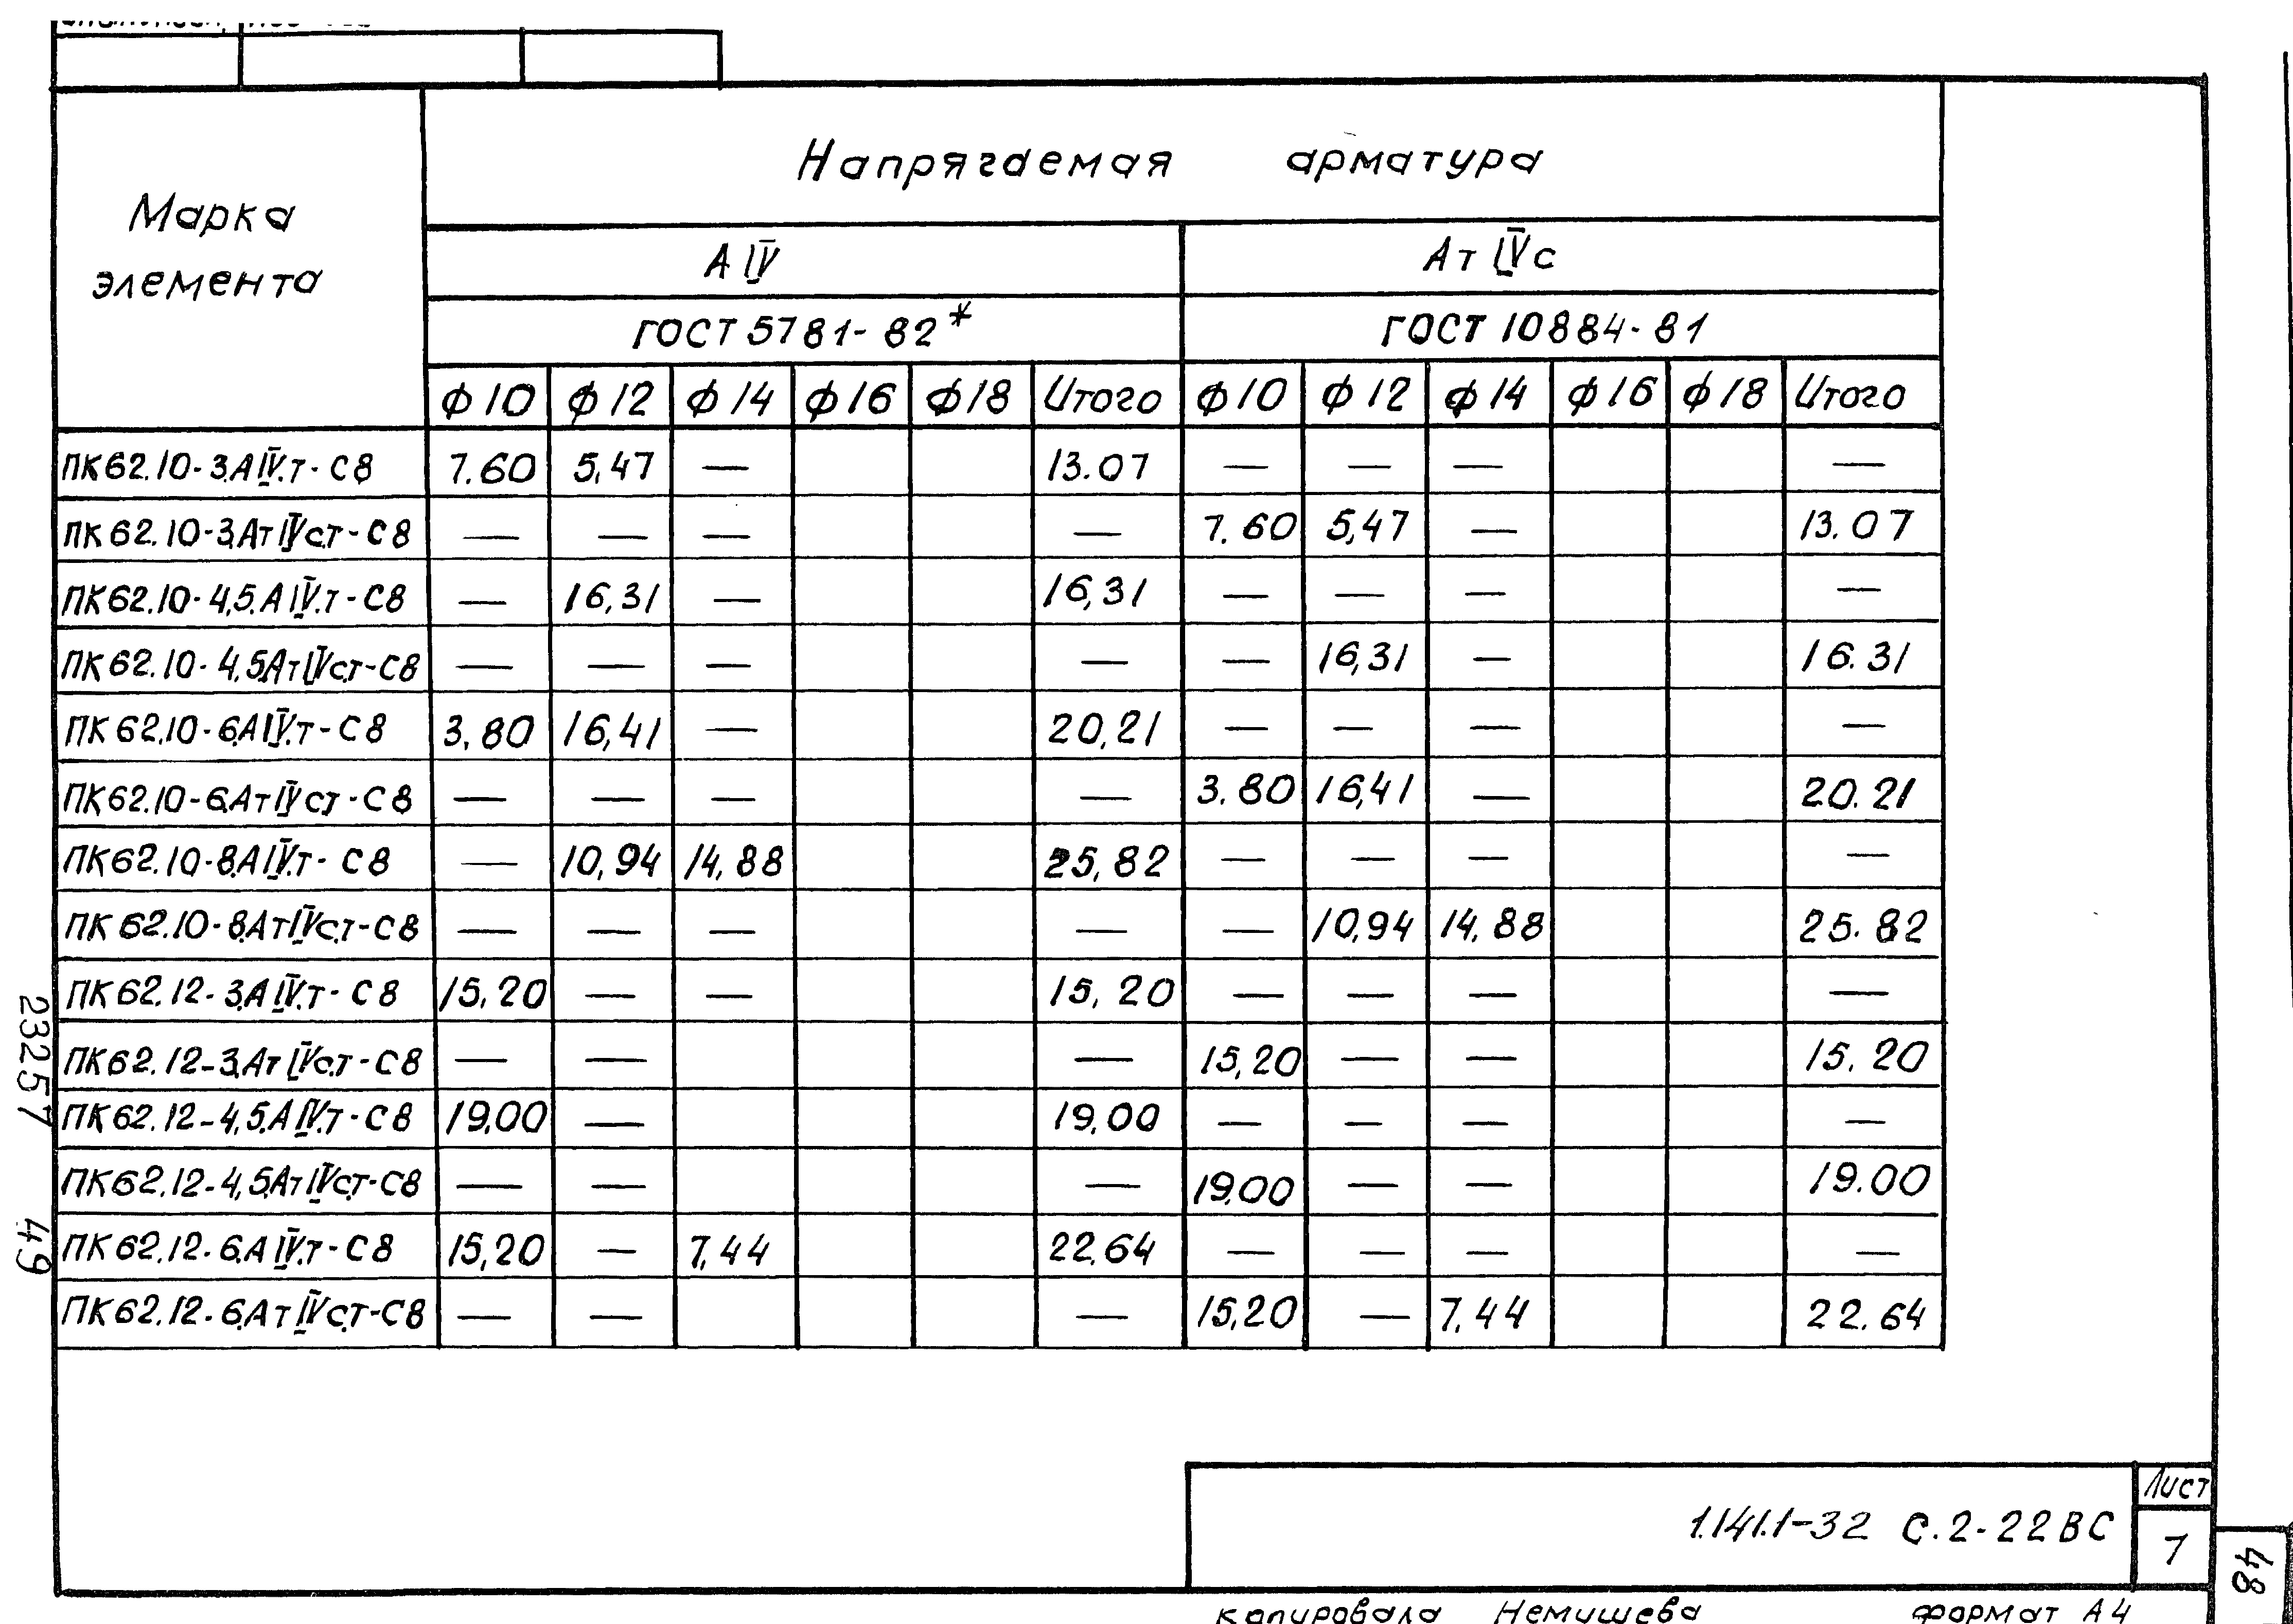 Марка элемента
Напрягаемая арматура
А IV
Ат IVс
ГОСТ 5781-82*
ГОСТ 10884-81
ф10 ф12 ф14 ф16 ф18 Итого ф10 ф12 ф14 ф16 ф18 Итого
ПК62.10-3.АIV.т-С8 7.60 5,47 — 13.07 — — — —
ПК62.10-3.АтIVс.т-С8 — — — — 7.60 5,47 — 13.07
ПК62.10-4,5.АIV.т-С8 — 16,31 — 16,31 — — — —
ПК62.10-4,5.АтIVс.т-С8 — — — — — 16,31 — 16.31
ПК62.10-6.АIV.т-С8 3,80 16,41 — 20,21 — — — —
ПК62.10-6.АтIVс.т-С8 — — — — 3.80 16,41 — 20.21
ПК62.10-8.АIV.т-С8 — 10,94 14,88 25,82 — — — —
ПК62.10-8.АтIVс.т-С8 — — — — — 10,94 14,88 25.82
ПК62.12-3.АIV.т-С8 15,20 — — 15,20 — — — —
ПК62.12-3.АтIVс.т-С8 — — — 15,20 — — 15.20
ПК62.12-4,5.АIV.т-С8 19,00 — 19,00 — — — —
ПК62.12-4,5.АтIVс.т-С8 — — — 19,00 — — 19.00
ПК62.12-6.АIV.т-С8 15,20 — 7,44 22.64 — — — —
ПК62.12-6.АтIVс.т-С8 — — — 15,20 — 7,44 22.64
23257 49
1.141.1-32 С.2-22ВС
Лист
7
48
копировала Немищева формат А4